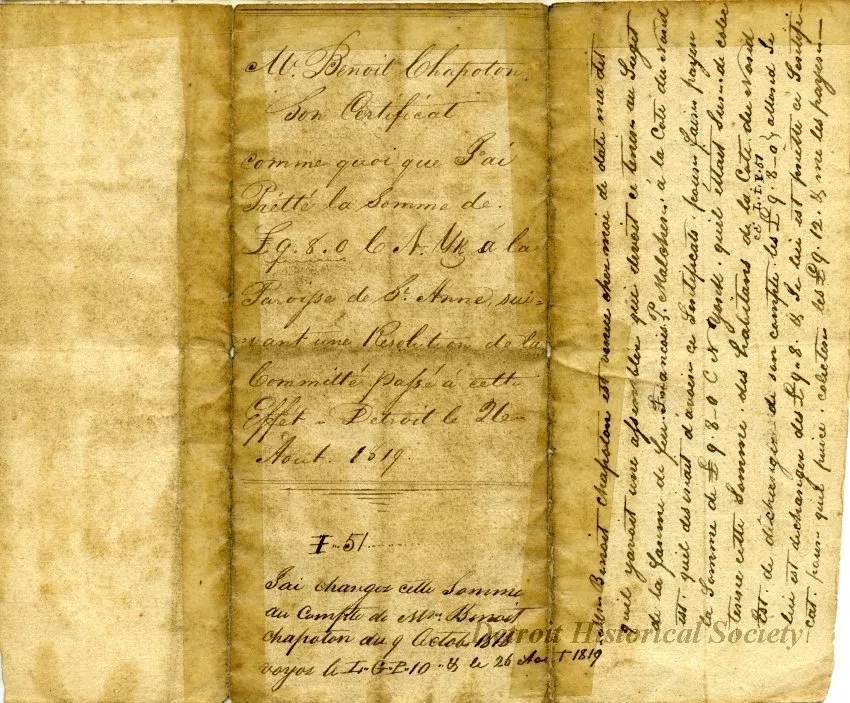 Mr. Benoit Chapoton
Son Certificat
comme quoi que J'ai
Prêtté la Somme de
£9.8.0 le N. Yk à la
Paroisse de St. Anne, sui-
vant une Resolution de la
Committé passé à cett
Effet - Detroit le 26
Aout. 1819.
I - 51
J'ai changez cette Somme
au Compte de Mr. Benoit
chapoton du 9 Octob 1818
voyez le L-G-P-10 - & le 26 Aout 1819
Mr Benoit chapoton est venue cher moi de date ma dit
quil yavait une assemblez qui devoit ce tenire au Suget
de la farme de feu François P. Malcher. à la Cote du Nord
est. quil desirait d'avoire ce Sentificats. pour faire payer
la Somme de £9.8-0 C N York. quil étais Sure de colec
terere cette Somme. des habitans de la Cote du Nord
Est. de déchargere de son compte les £9.8-0 } attend Se
ce L.I.P.51
lui est dechargez des £9.8. & Se lui est prette ci Sentifi-
cat. pour quil puice. colecton les £9.12. & me les payere
Detroit Historical Society